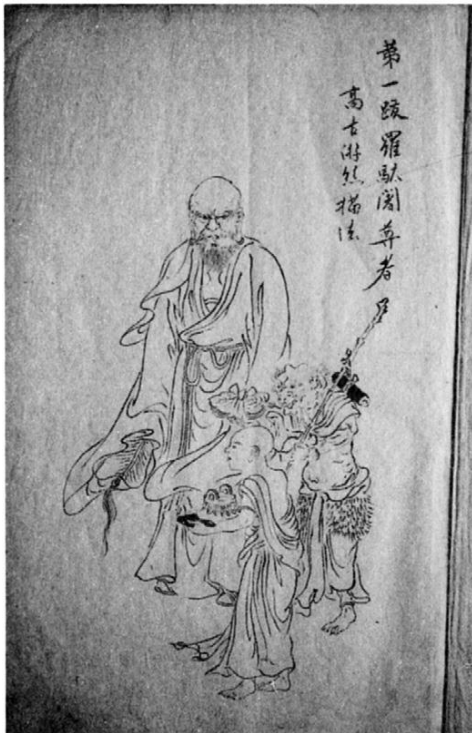 第一跋羅駄闍尊者
高古游絲描法